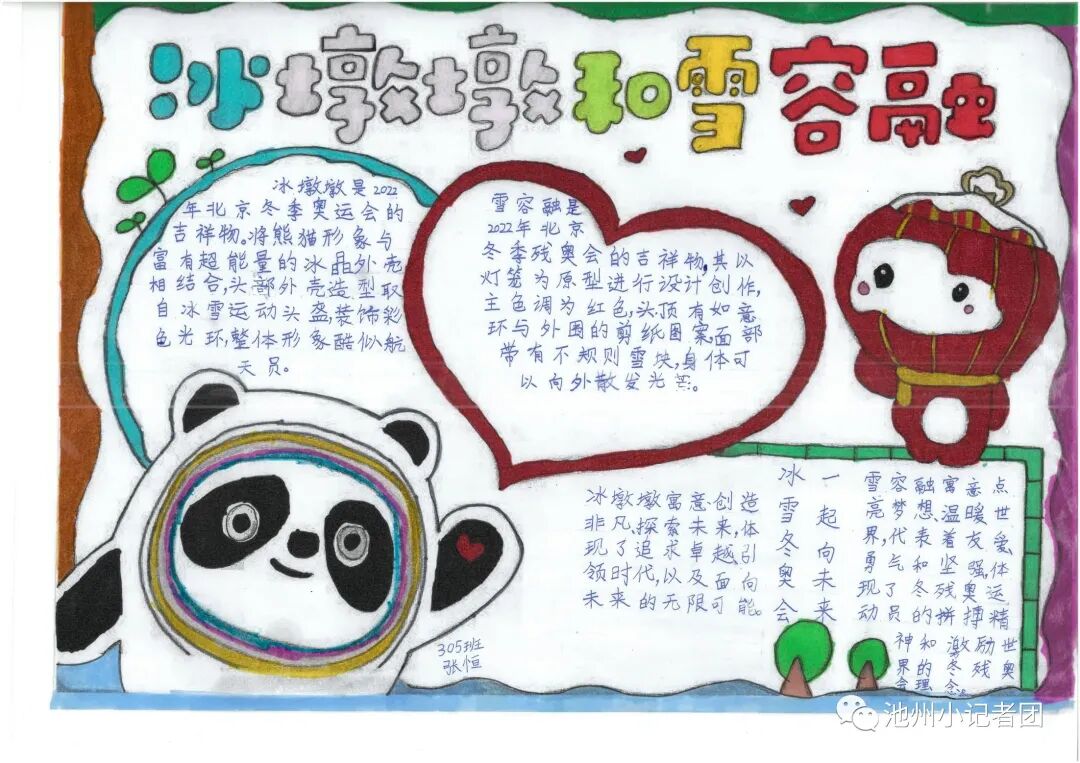 冰墩墩和雪容融
冰墩墩是2022
年北京冬季奥运会的
吉祥物。将熊猫形象与
富有超能量的冰晶外壳
相结合,头部外壳造型取
自冰雪运动头盔,装饰彩
色光环,整体形象酷似航
天员。
雪容融是
2022年北京
冬季残奥会的吉祥物,其以
灯笼为原型进行设计创作,
主色调为红色,头顶有如意
环与外围的剪纸图案,面部
带有不规则雪块,身体可
以向外散发光芒。
冰墩墩寓意创造
非凡、探索未来,体
现了追求卓越、引
领时代,以及面向
未来的无限可能。
一起向未来
冰雪冬奥会
雪容融寓意点
亮梦想、温暖世
界,代表着友爱
勇气和坚强,体
现了冬残奥运
动员的拼搏精
神和激励世
界的冬残奥
会理念。
305班
张恒
池州小记者团